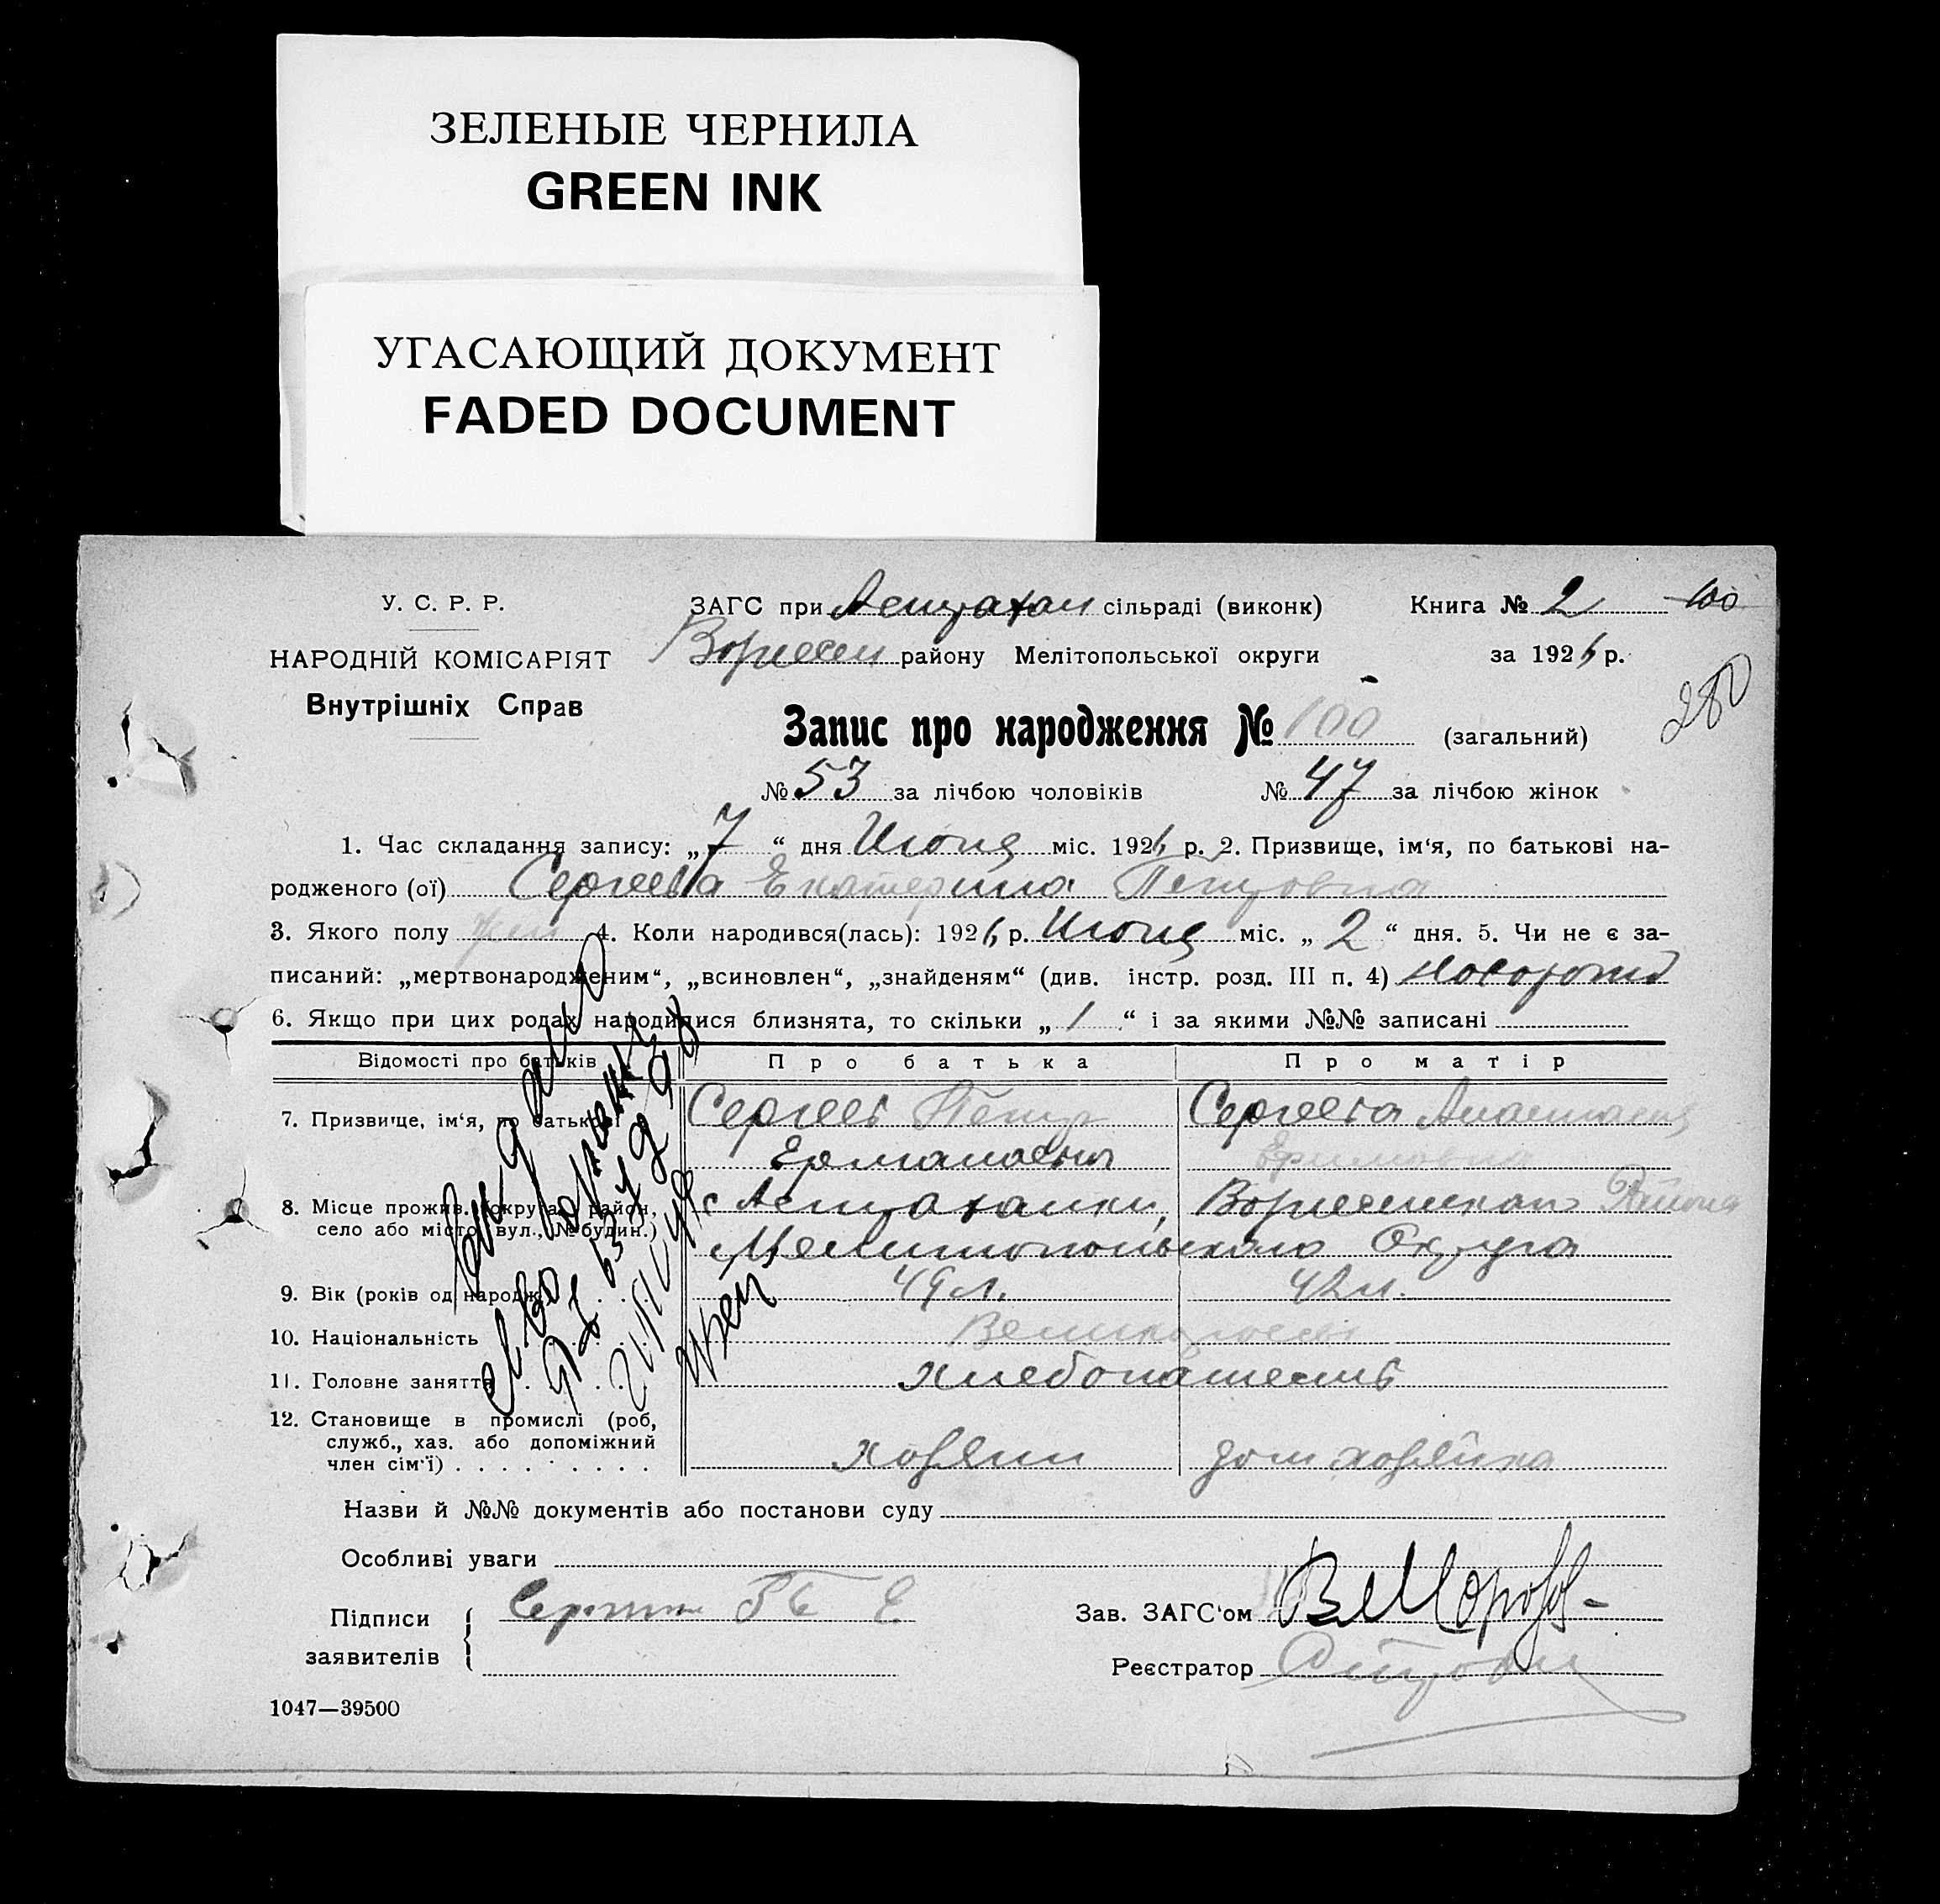 ЗЕЛЕНЫЕ ЧЕРНИЛА
GREEN INK
УГАСАЮЩИЙ ДОКУМЕНТ
FADED DOCUMENT
У. С. Р. Р.
НАРОДНІЙ КОМІСАРІЯТ
Внутрішніх Справ
ЗАГС при Астрахан сільраді (виконк)
району Мелітопольської округи
Книга № 2 100
за 1926 р.
280
Запис про народження № 100 (загальний)
№ 53 за лічбою чоловіків № 47 за лічбою жінок
1. Час складання запису: „7“ дня Июня міс. 1926 р. 2. Призвище, ім‘я, по батькові на-
родженого (ої) Сергеева Екатерина Петровна
3. Якого полу жен 4. Коли народився(лась): 1926 р. Июня міс. „2“ дня. 5. Чи не є за-
писаний: „мертвонародженим“, „всиновлен“, „знайденям“ (див. інстр. розд. III п. 4)
6. Якщо при цих родах народилися близнята, то скільки „1“ і за якими №№ записані
Відомості про батьків Про батька Про матір
7. Призвище, ім‘я, по батькові Сергеев Петр Сергеева Анастасия
Ефимовна
8. Місце прожив. (округа, район, с Астраханки, Района
село або місто, вул., № будин.) Мелитопольского Округа
9. Вік (років од народж.) 49 л. 42 л.
10. Національність Великоросы
11. Головне заняття хлебопашест
12. Становище в промислі (роб, служб., хаз. або допоміжний член сім‘ї) хозяин дом хозяйка
Назви й №№ документів або постанови суду
Особливі уваги
Підписи
заявителів
Зав. ЗАГС‘ом
Реєстратор
1047—39500